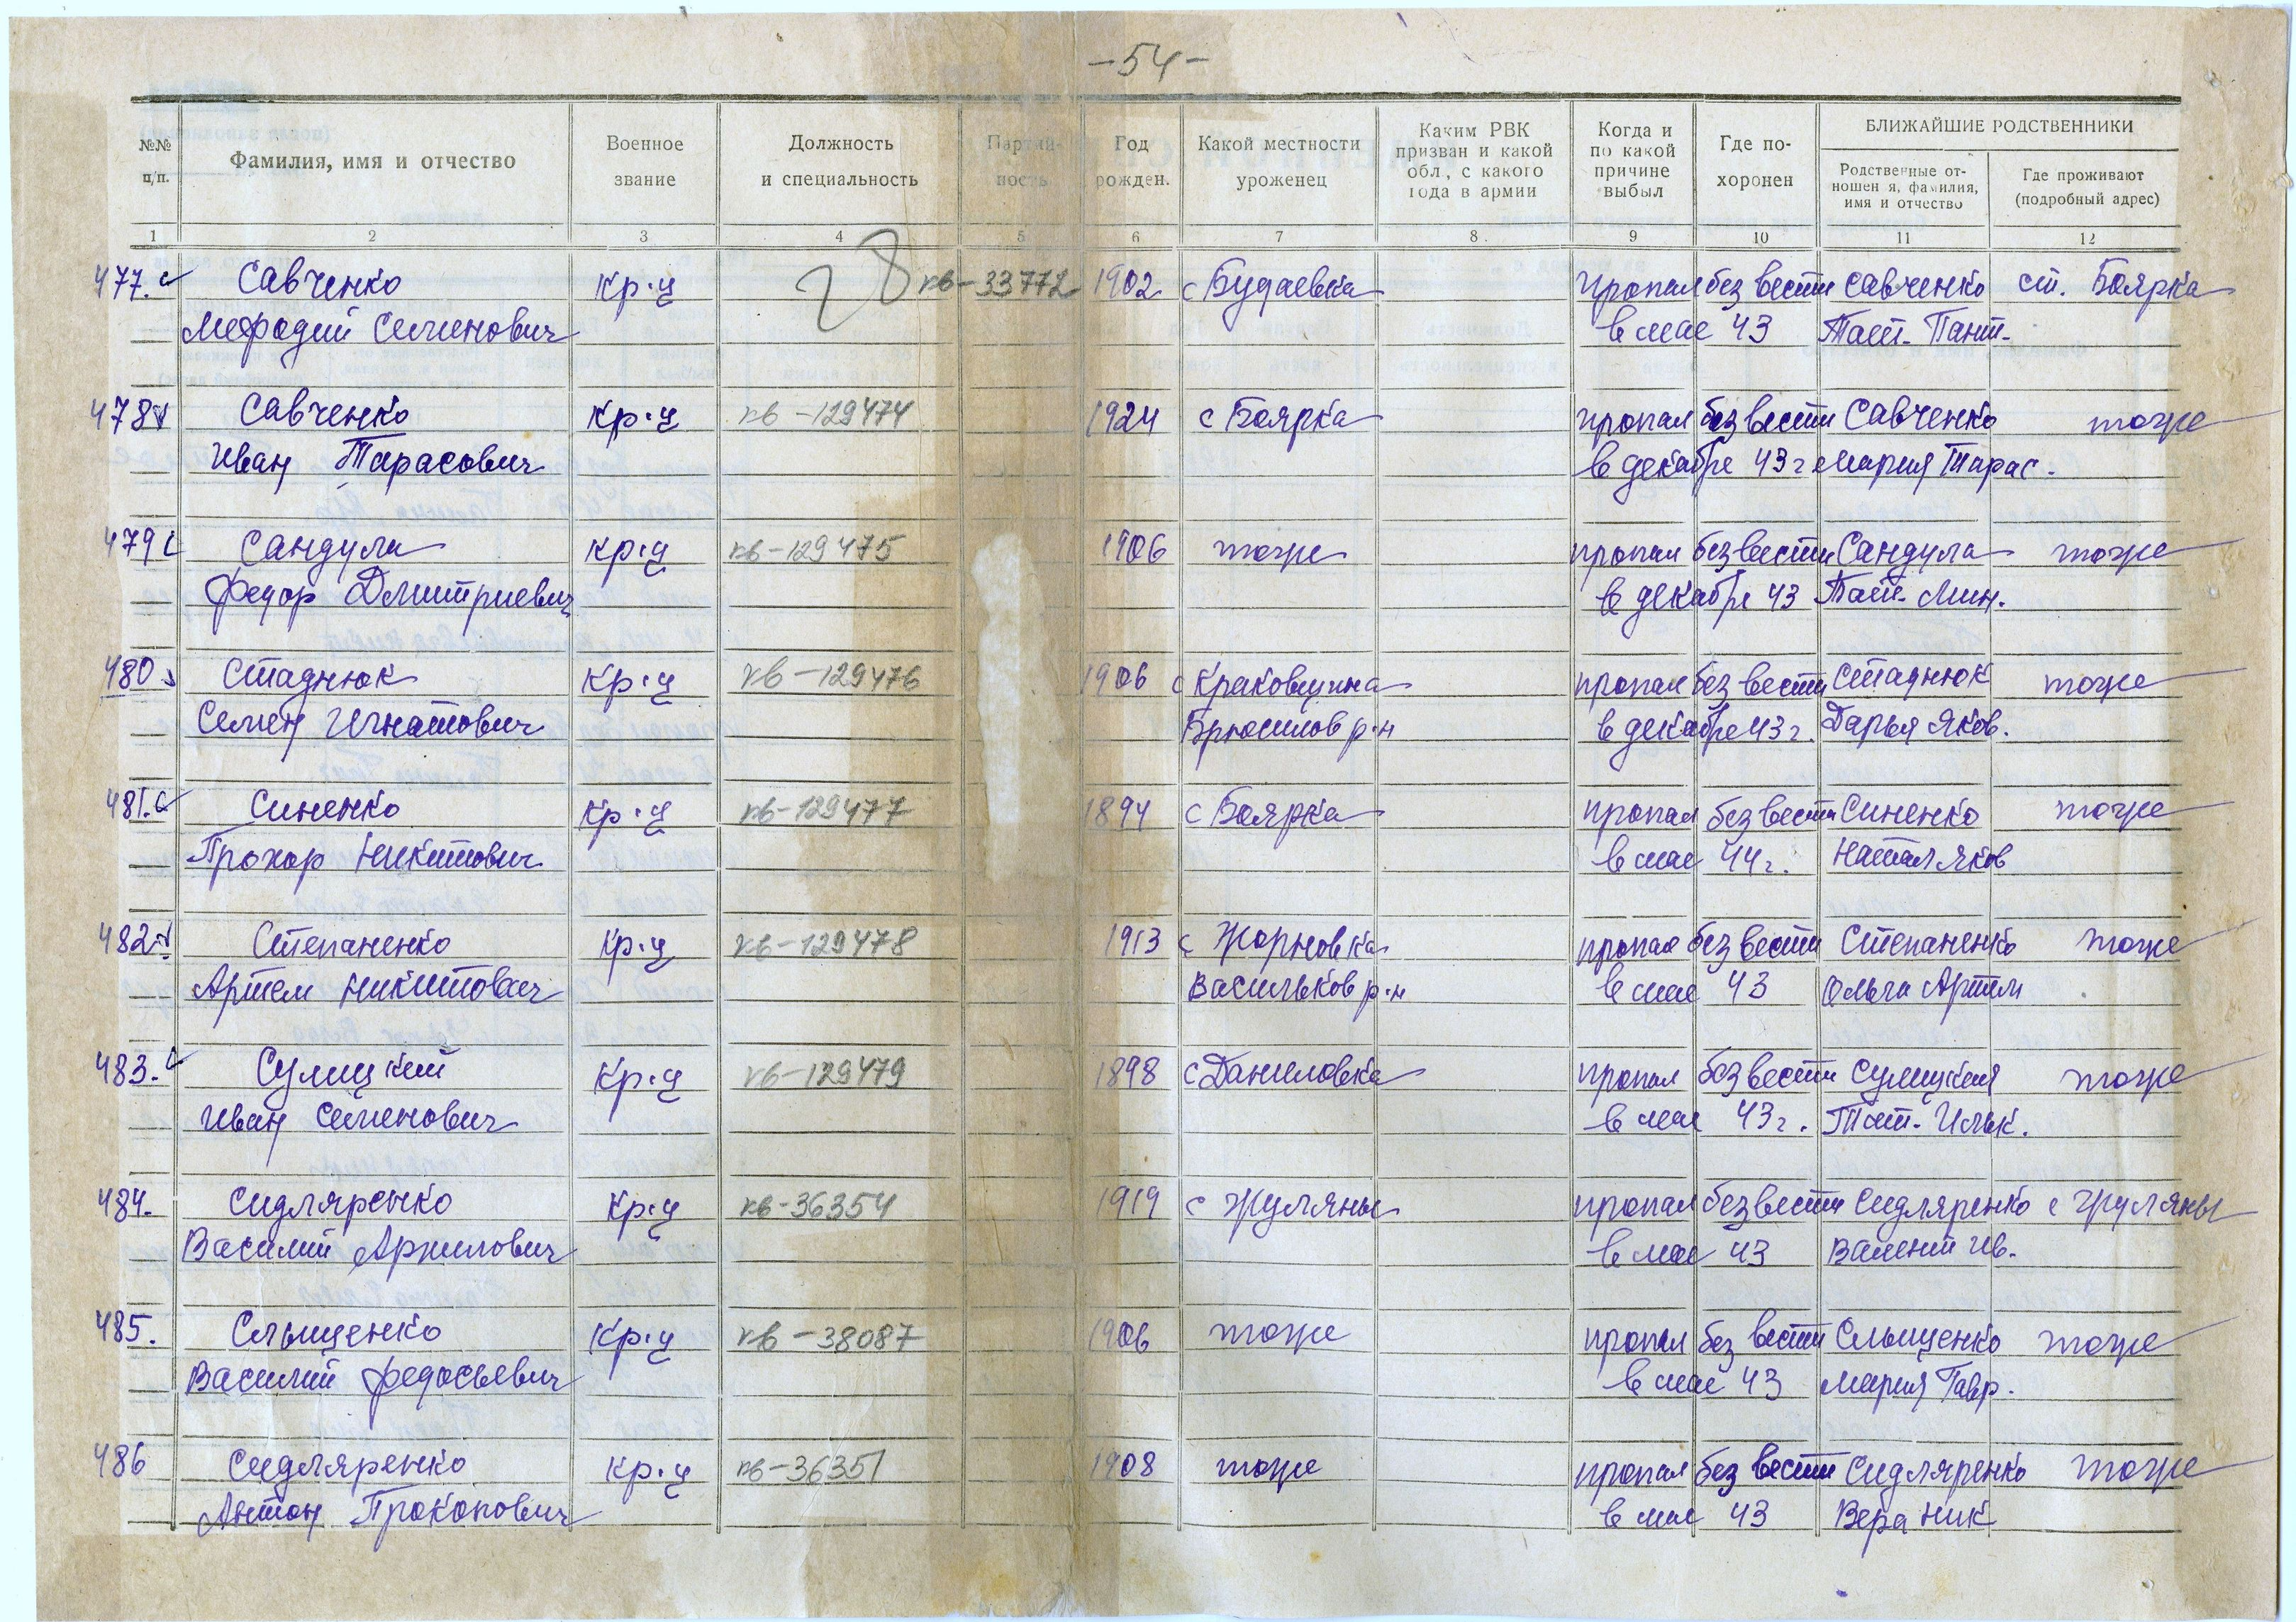 -54-
№№ п/п.
Фамилия, имя и отчество
Военное звание
Должность и специальность
Партий- ность
Год рожден.
Какой местности уроженец
Каким РВК призван и какой обл, с какого года в армии
Когда и по какой причине выбыл
Где по- хоронен
БЛИЖАЙШИЕ РОДСТВЕННИКИ
Родственные от- ношен я, фамилия, имя и отчество
Где проживают (подробный адрес)
1 2 3 4 5 6 7 8. 9 10 11 12
477. Савченко кр-ц 28 кв-33772 1902 с Будаевка пропал без вести Савченко ст. Боярка
Мефодий Семенович в мае 43 Тат. Пант.
478 Савченко кр-ц кв-129474 1924 с Боярка пропал без вести Савченко тоже
Иван Тарасович в декабре 43 г Мария Тарас.
479 Сандула кр-ц кв-129475 1906 тоже пропал без вести Сандула тоже
Федор Дмитриевич в декабре 43 Тат. Мин.
480 Стаднюк кр-ц кв-129476 1906 с Краковщина пропал без вести Стаднюк тоже
Семен Игнатович Брюсилов р-н в декабре 43 г. Дарья Яков.
481. Синенко кр-ц кв-129477 1894 с Боярка пропал без вести Синенко тоже
Прохор Никитович в мае 44 г. Натал Яков
482 Степаненко кр-ц кв-129478 1913 с Жорновка пропал без вести Степаненко тоже
Артем Никитович Васильков р-н в мае 43 Ольга Артем
483. Сулицкий кр-ц кв-129479 1898 с Даниловка пропал без вести Сулицкая тоже
Иван Семенович в мае 43 г. Тат. Ильк.
484. Сидляренко кр-ц кв-36354 1919 с Жуляны пропал без вести Сидляренко с Жуляны
Василий в мае 43 Валент Ив.
485. Слыщенко кр-ц кв-38087 1906 тоже пропал без вести Слыщенко тоже
Василий Федосьевич в мае 43 Мария Гавр.
486 Сидляренко кр-ц кв-36351 1908 тоже пропал без вести Сидляренко тоже
Антон Прокопович в мае 43 Вера Ник